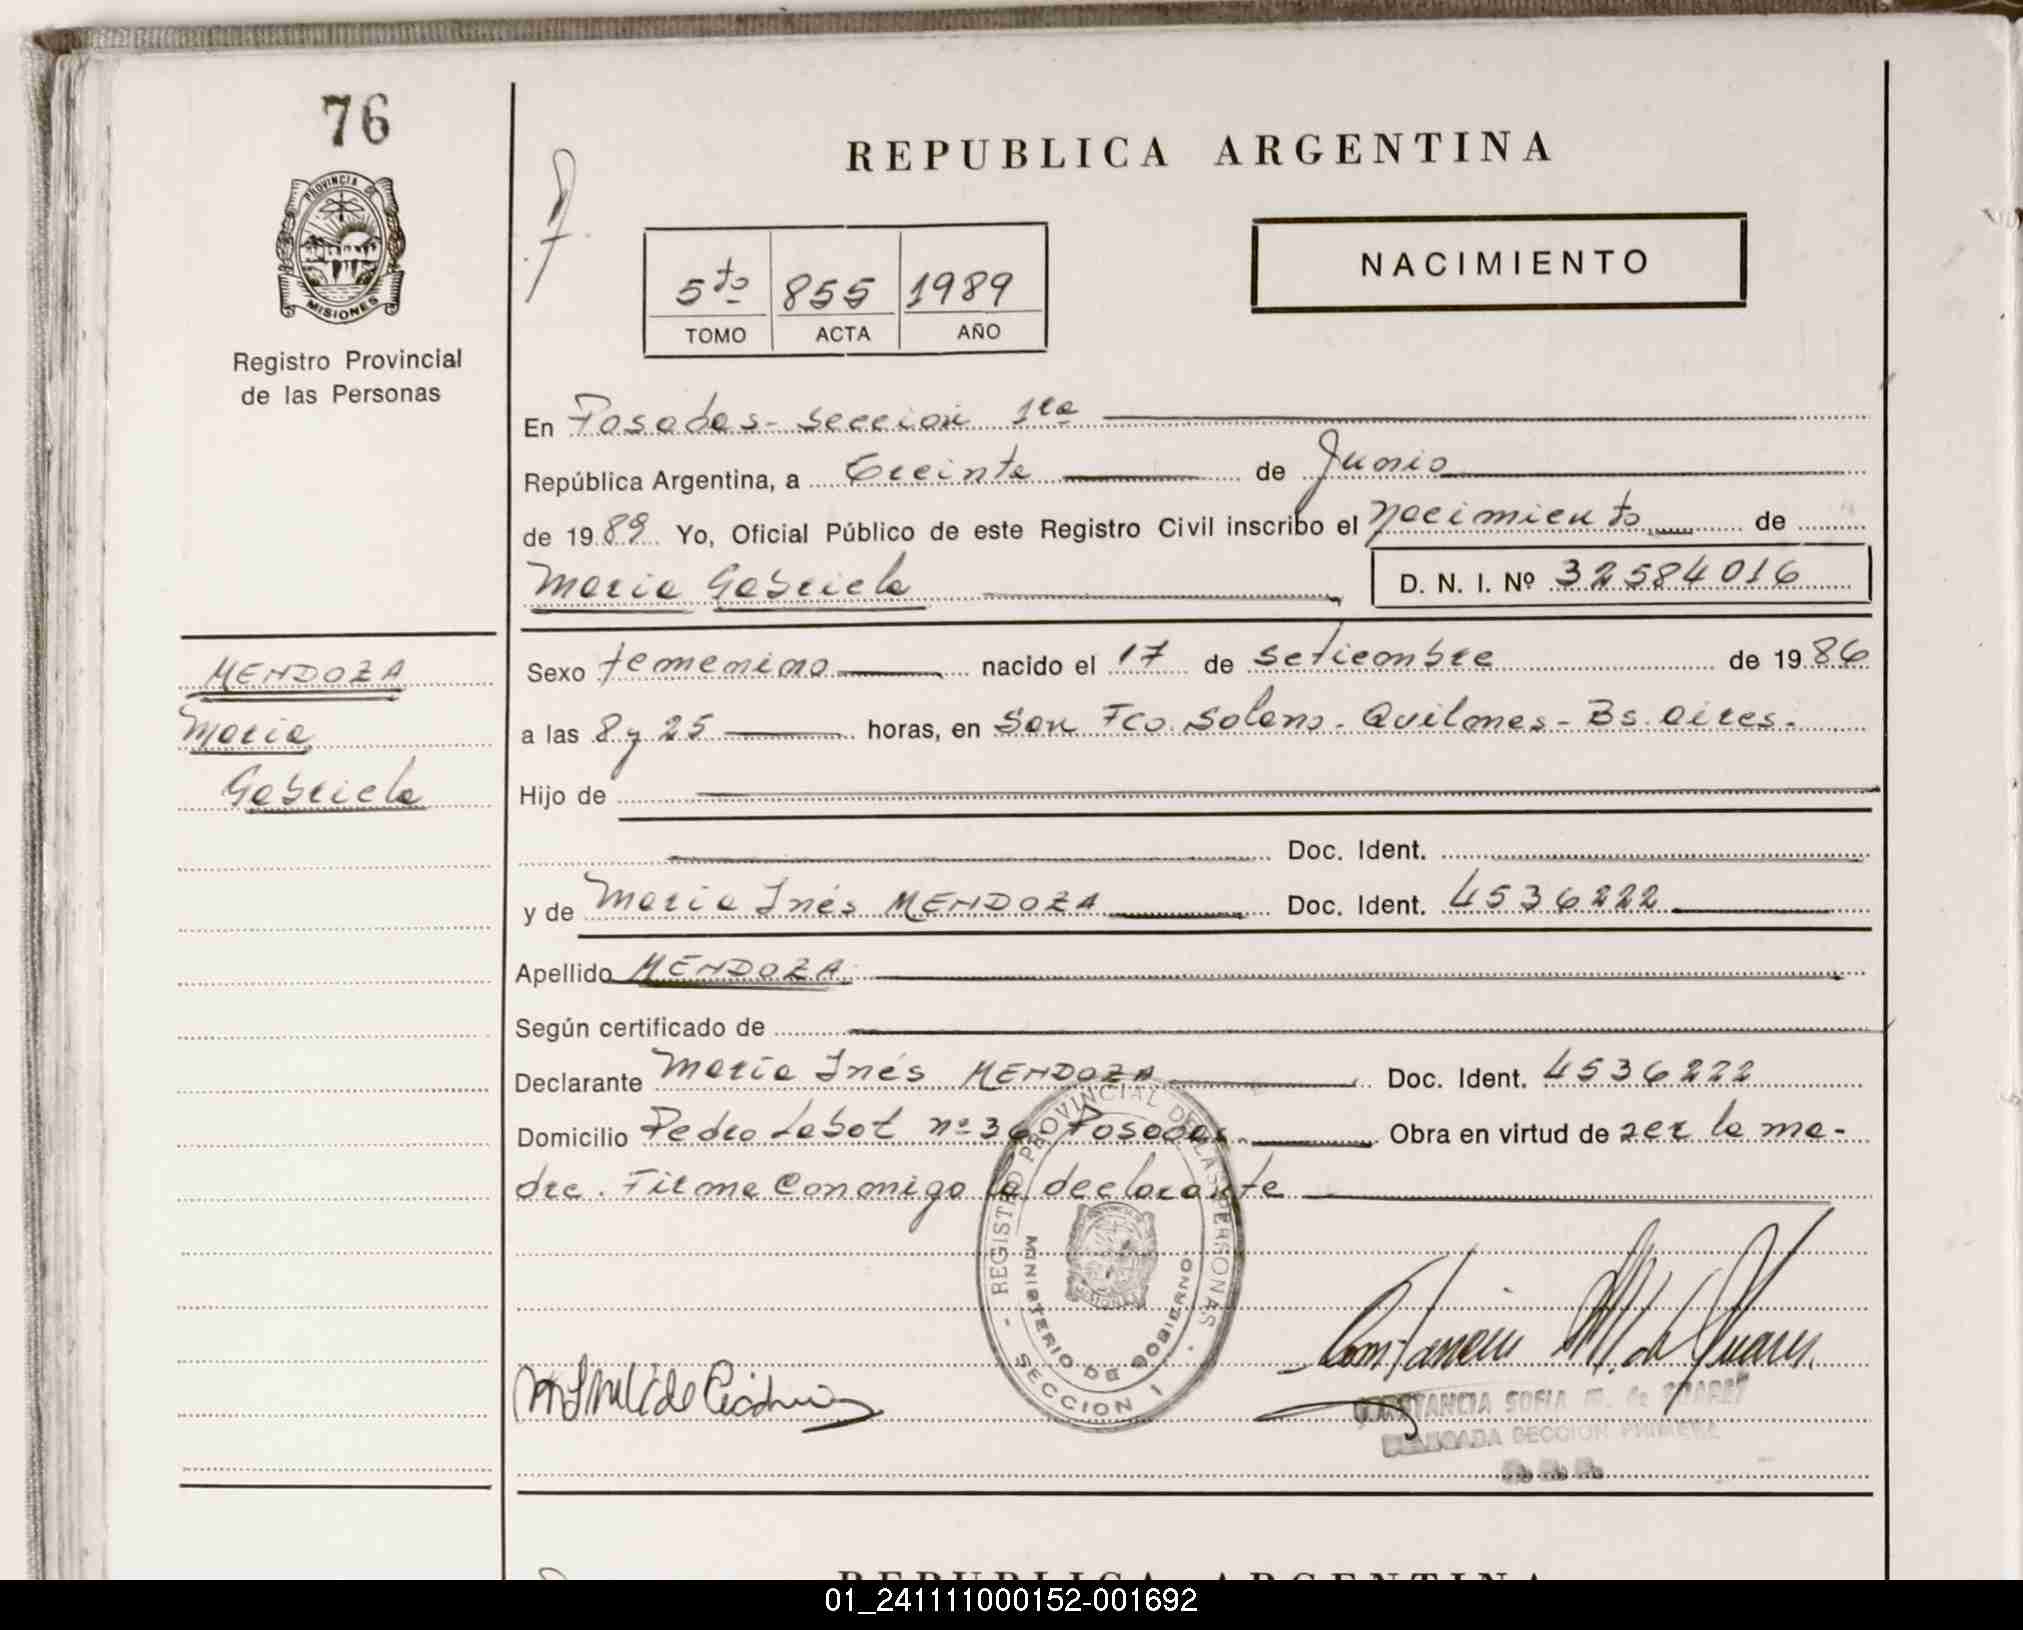 76
PROVINCIA DE
MISIONES
Registro Provincial
de las Personas
REPUBLICA ARGENTINA
5to 855 1989
TOMO ACTA AÑO
NACIMIENTO
En Posadas - Sección 1ra
República Argentina, a treinta de Junio
de 1989 Yo, Oficial Público de este Registro Civil inscribo el nacimiento de
Maria Gabriela D. N. I. Nº 32584016
MENDOZA
Maria
Gabriela
Sexo femenino nacido el 17 de setiembre de 1986
a las 8 y 25 horas, en San Fco. Solano - Quilmes - Bs. Aires.
Hijo de
Doc. Ident.
y de Maria Inés MENDOZA Doc. Ident. 4536222
Apellido MENDOZA
Según certificado de
Declarante María Inés MENDOZA Doc. Ident. 4536222
Domicilio Pedro Labat nº 36 - Posadas. Obra en virtud de ser la ma-
dre. Firma conmigo la declarante
- REGISTRO PROVINCIAL DE LAS PERSONAS -
MINISTERIO DE GOBIERNO
SECCION I
CONSTANCIA SOFIA M. de SUAREZ
SECCION PRIMERA
REPUBLICA ARGENTINA
01_241111000152-001692